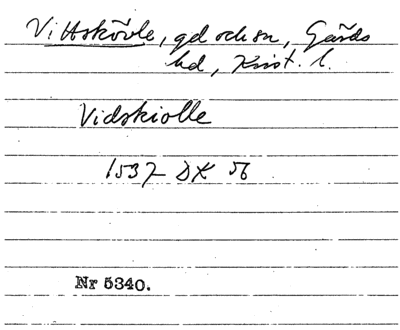 Vittskövle, gd och sn, Gärds
hd, Krist. l.
Vidskiolle
1537 DK 56
Nr 5340.